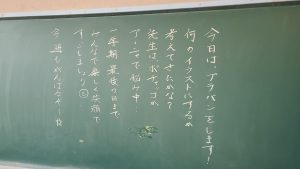 今日は、プラバンをします!
何のイラストにするか
考えてきたかな?
先生は、ポチャッコか
で悩み中…
一学期最後の日まで
みんなで楽しく笑顔で
すごしましょう
今週もがんばろう!